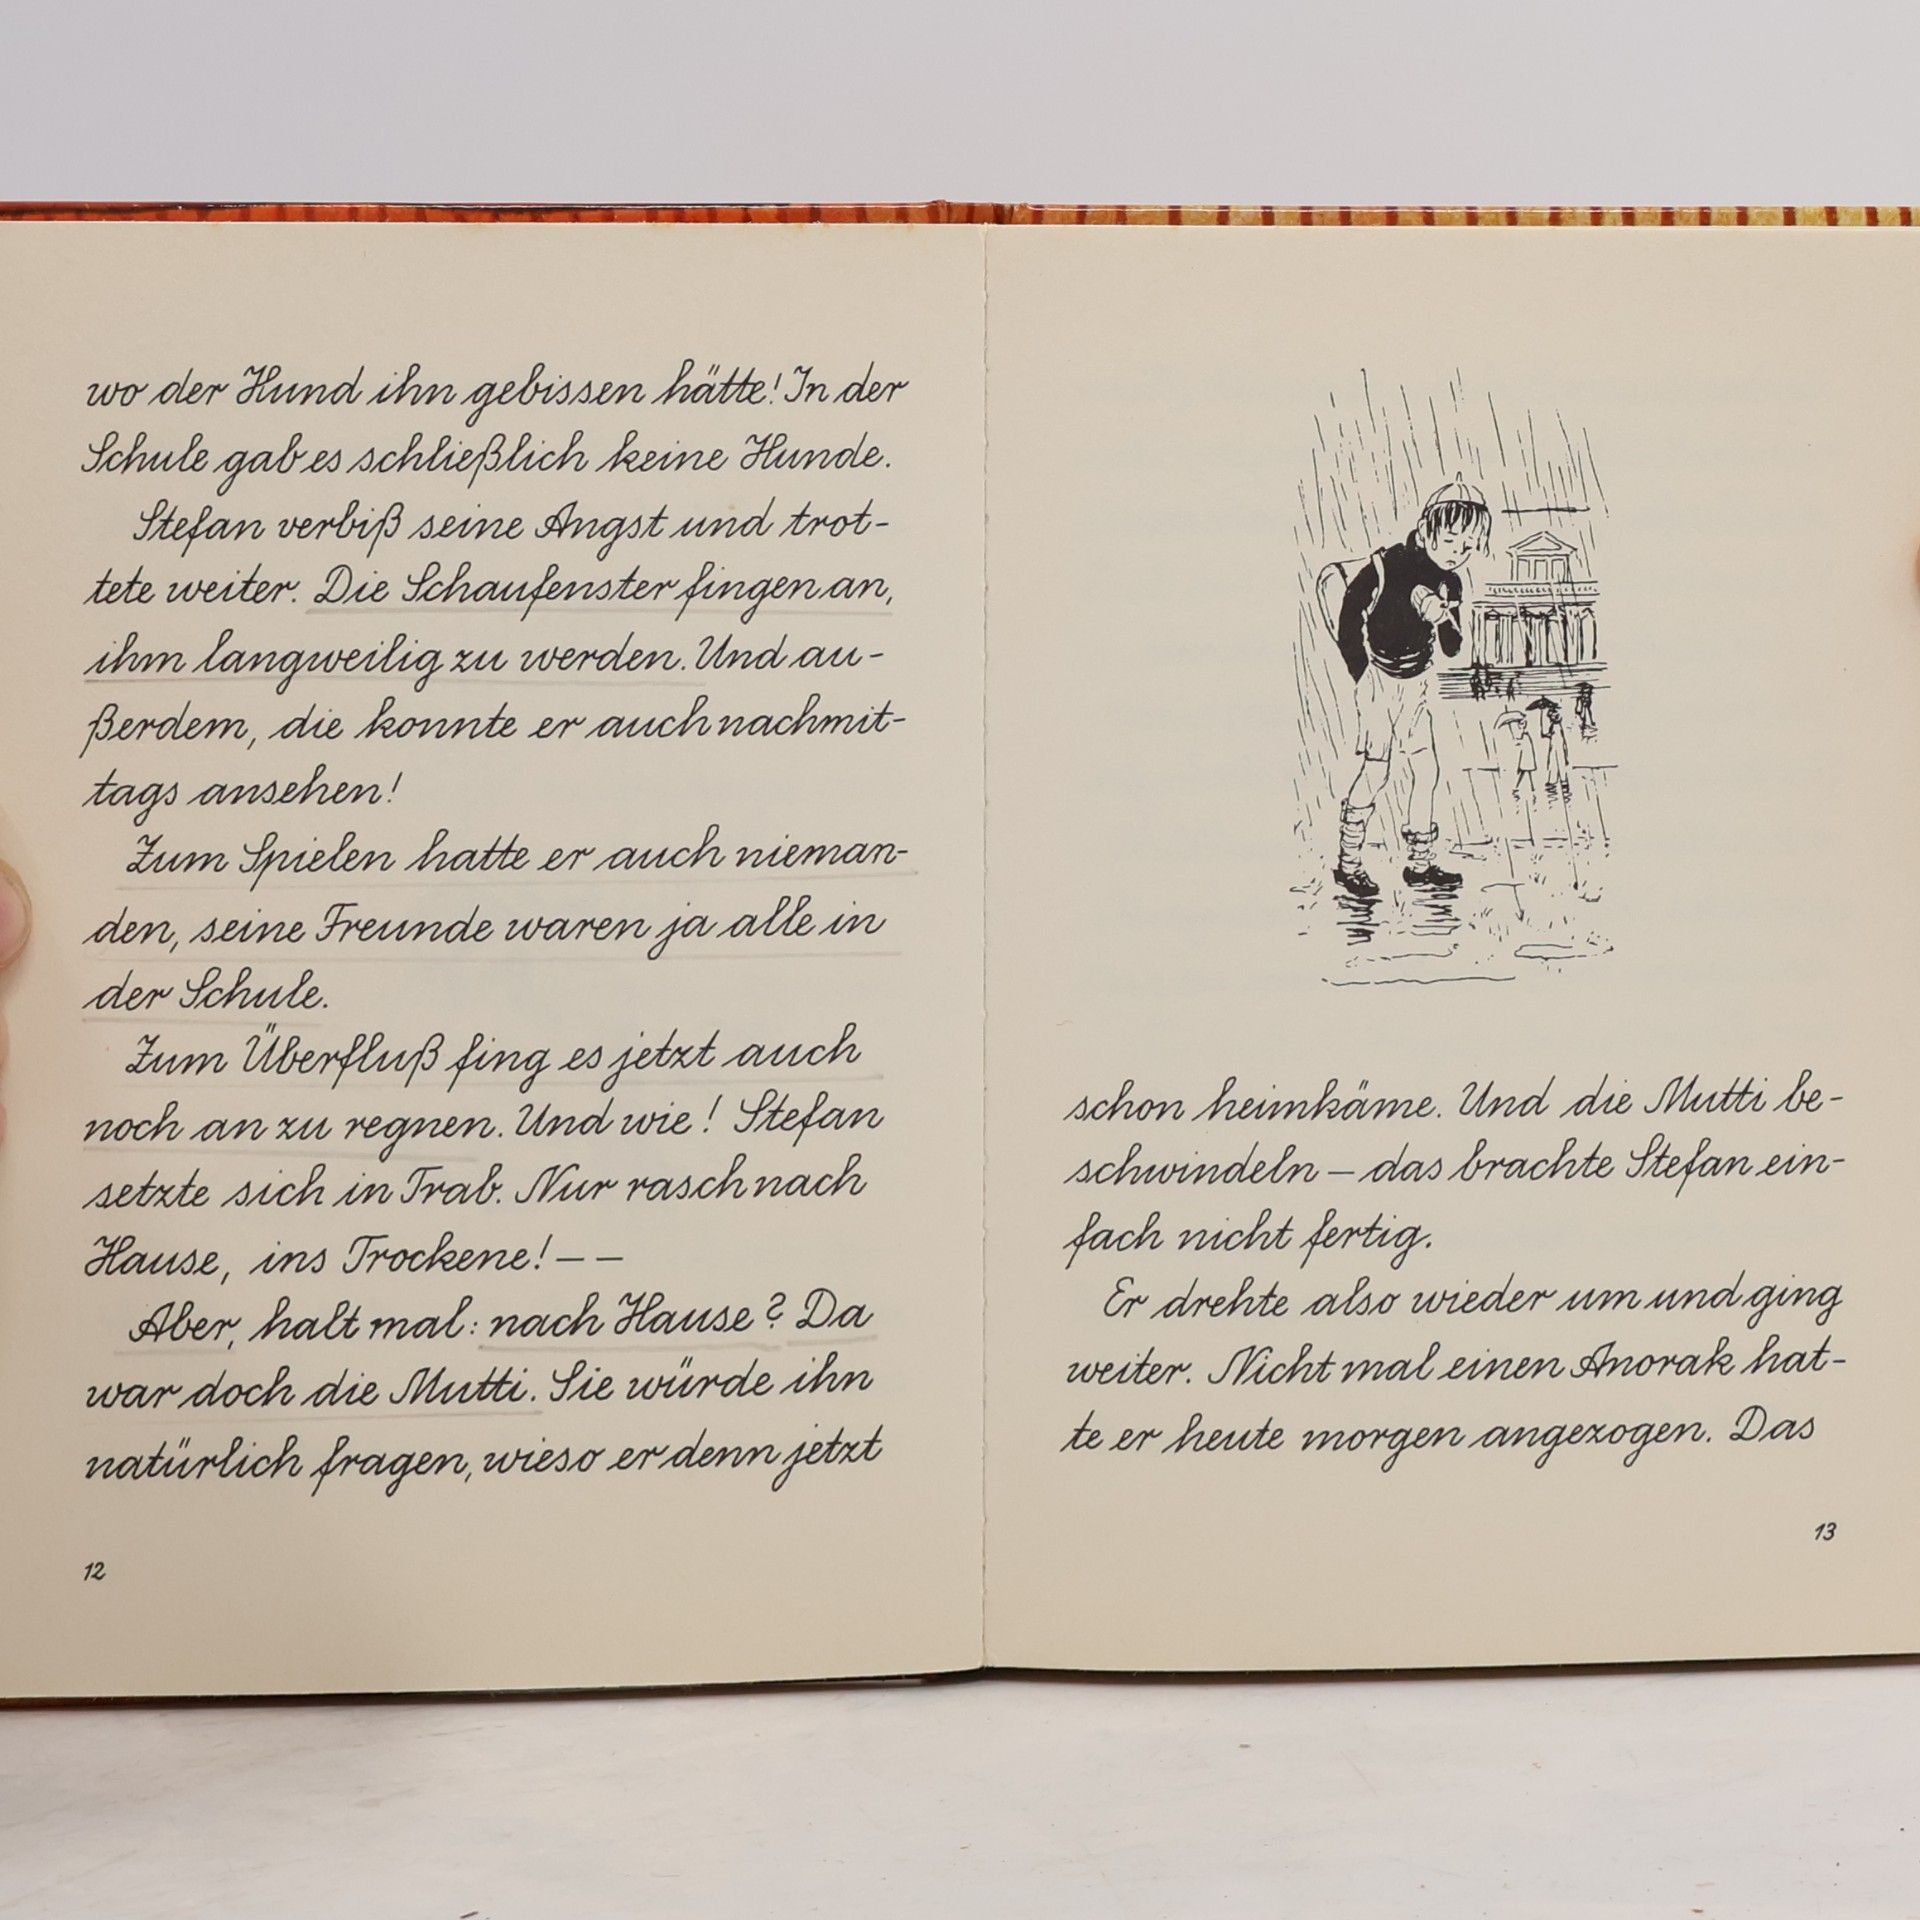 wo der Hund ihn gebissen hätte! In der
Schule gab es schließlich keine Hunde.
Stefan verbiß seine Angst und trot-
tete weiter. Die Schaufenster fingen an,
ihm langweilig zu werden. Und au-
ßerdem, die konnte er auch nachmit-
tags ansehen!
Zum Spielen hatte er auch nieman-
den, seine Freunde waren ja alle in
der Schule.
Zum Überfluß fing es jetzt auch
noch an zu regnen. Und wie! Stefan
setzte sich in Trab. Nur rasch nach
Hause, ins Trockene! – –
Aber, halt mal: nach Hause? Da
war doch die Mutti. Sie würde ihn
natürlich fragen, wieso er denn jetzt
12
schon heimkäme. Und die Mutti be-
schwindeln – das brachte Stefan ein-
fach nicht fertig.
Er drehte also wieder um und ging
weiter. Nicht mal einen Anorak hat-
te er heute morgen angezogen. Das
13